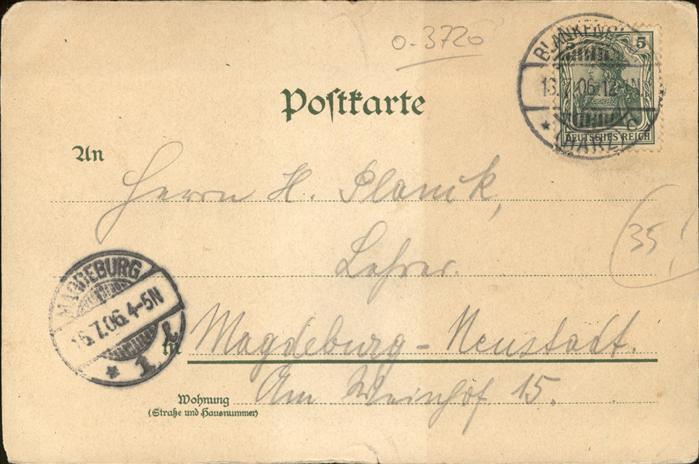 0-3720
BLANKENBU
5 5
13.7.06.12-1N
* (HARZ) c
DEUTSCHES REICH
Postkarte
An
Herrn H. Planck,
(35!
Lehrer.
MAGDEBURG
7.06. 4-5N
* 1
Magdeburg-Neustadt.
Am Weinhof 15.
Wohnung
(Straße und Hausnummer)